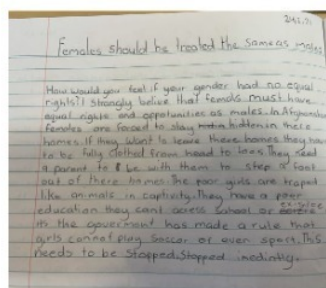 Females should be treated the same as males
How would you feel if your gender had no equal
rights? I strongly belive that femals must have
equal rights and oppatunities as males. In Afghanistan
females are forced to stay hidden in there
homes. If they want to leave there homes they have
to be fully clothed from head to toes. They need
a parent to be with them to step a foot
out of there homes. The poor girls are traped
like animals in captivity. They have a poor
education they cant access school or exersice
as the goverment has made a rule that
girls cannot play soccer or even sport. This
needs to be Stopped. Stopped